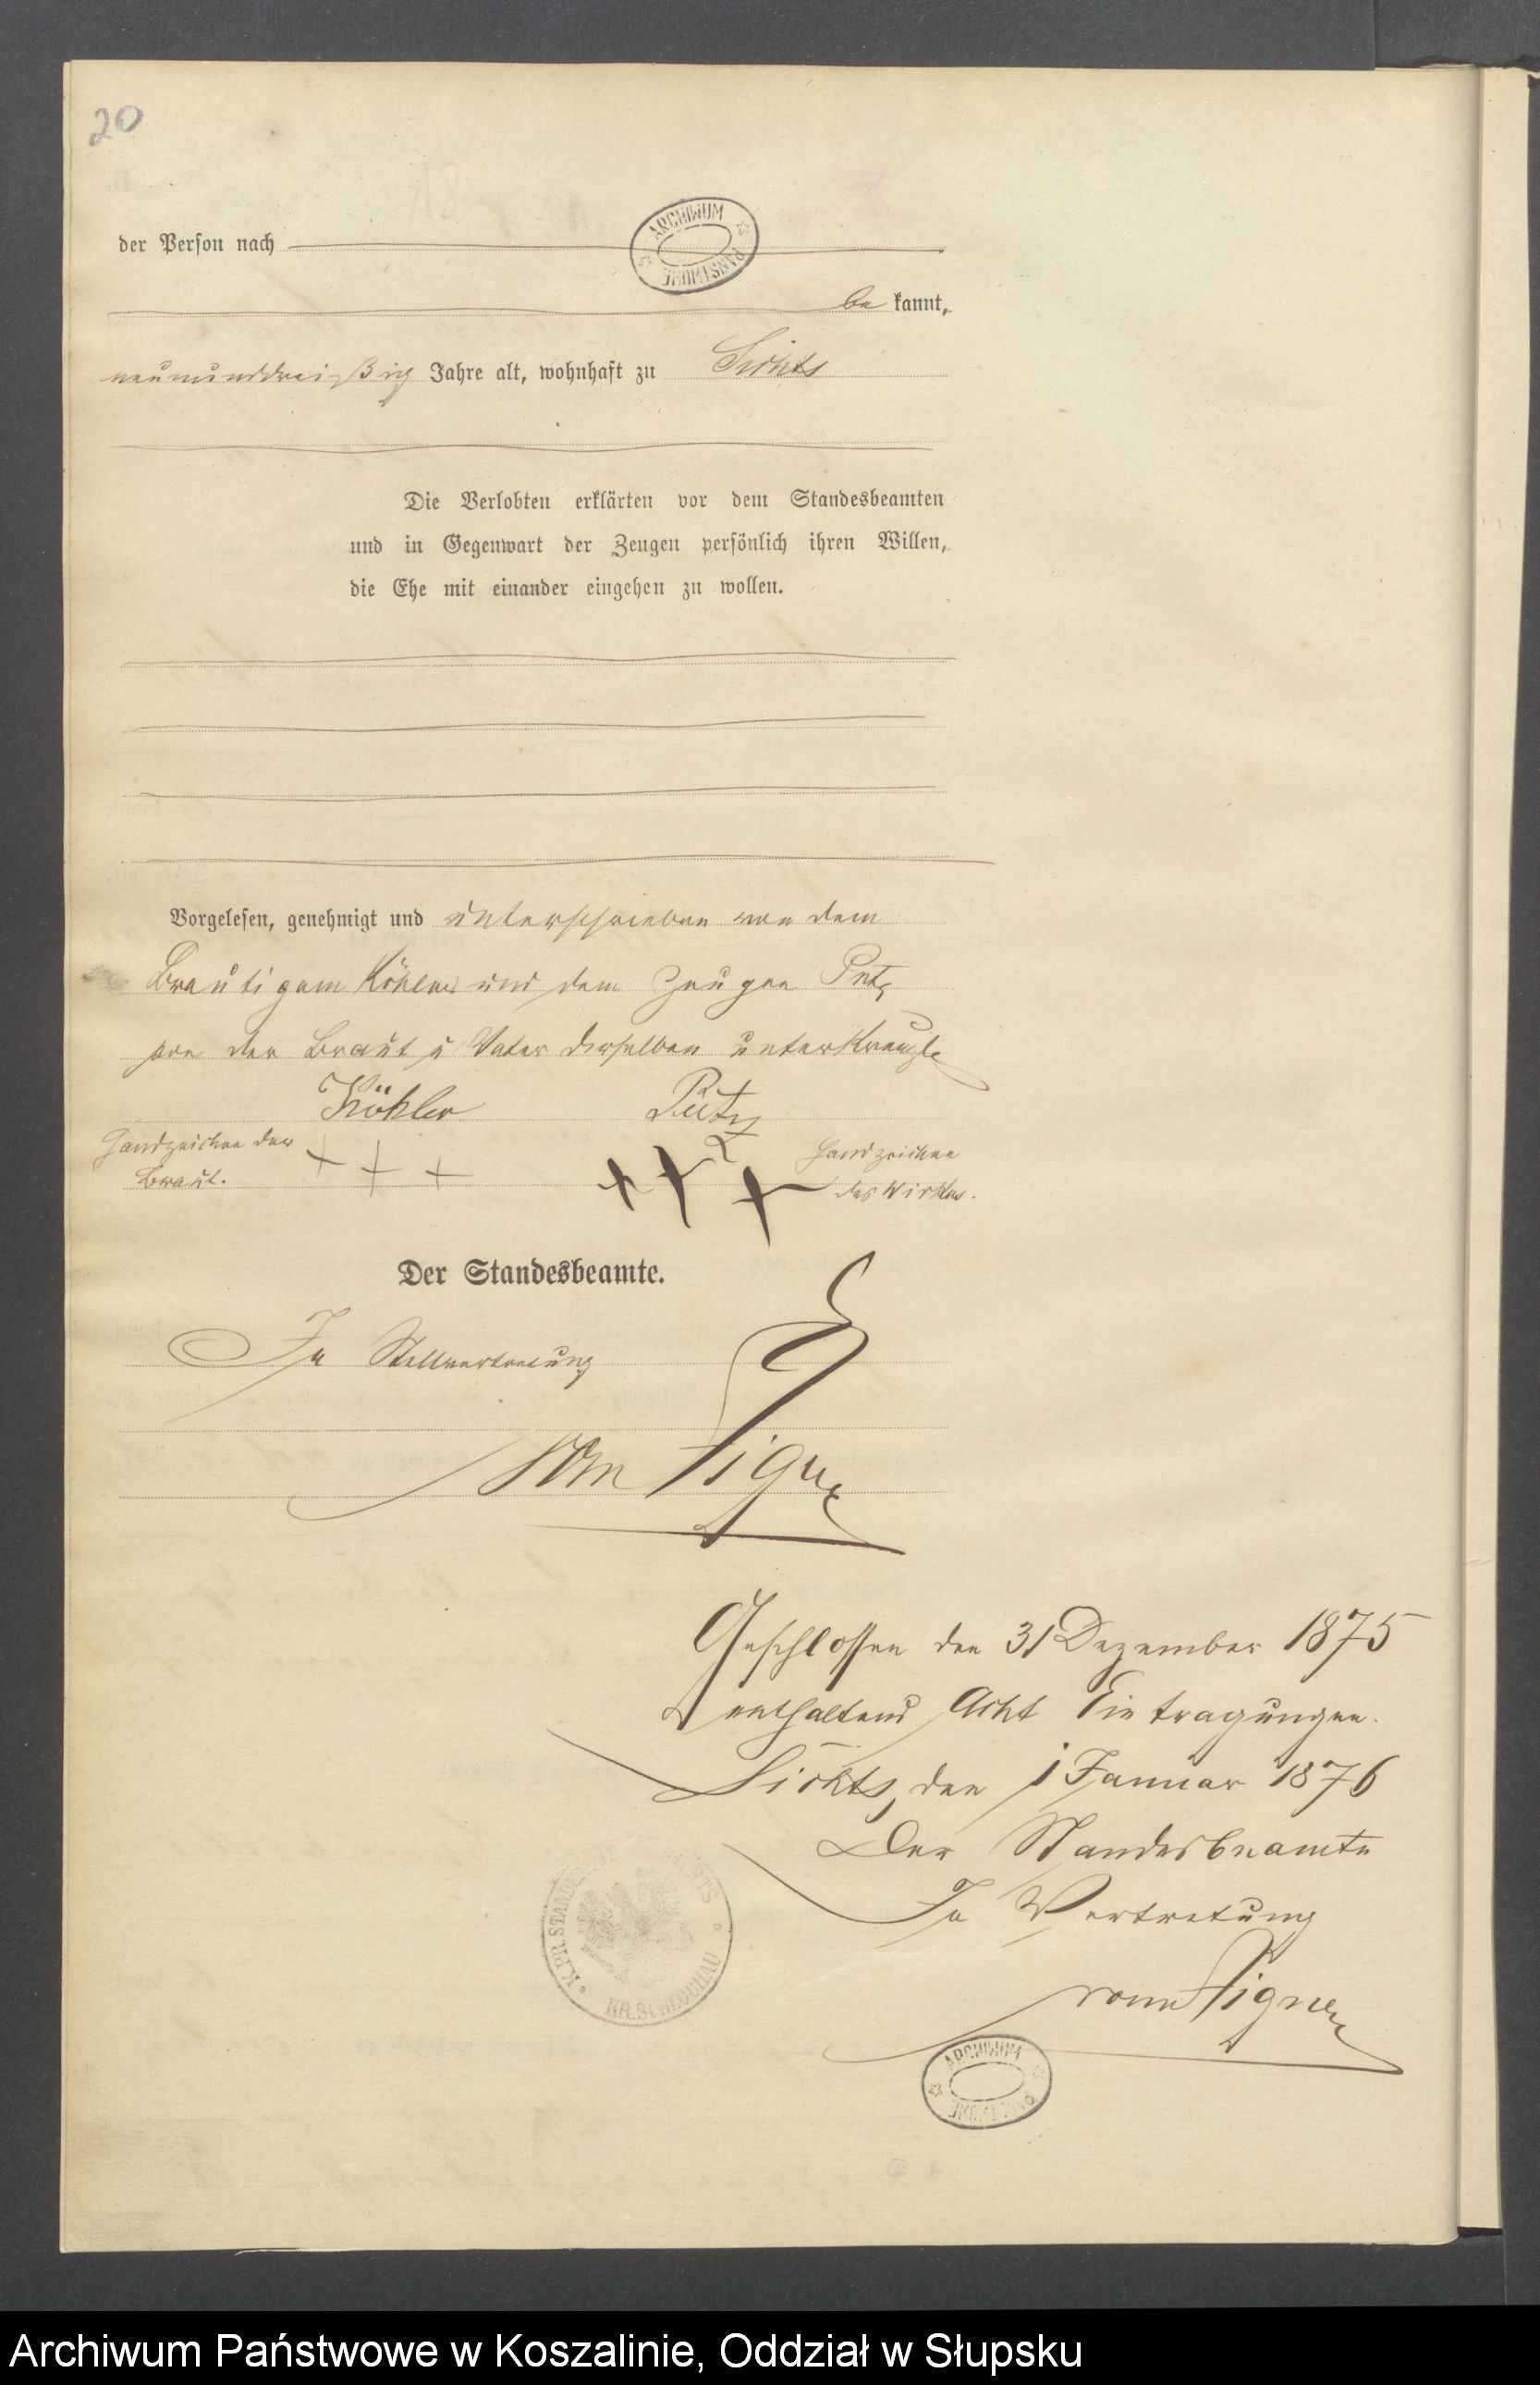 20
der Person nach
ARCHIWUM PAŃSTWOWE
be kannt,
neununddreißig Jahre alt, wohnhaft zu Sichts
Die Verlobten erklärten vor dem Standesbeamten
und in Gegenwart der Zeugen persönlich ihren Willen,
die Ehe mit einander eingehen zu wollen.
Vorgelesen, genehmigt und unterschrieben von dem
Bräutigam Köhler und dem Zeugen
von der Braut u Vater derselben unterkreuzt
Köhler
Handzeichen der + + + + + + Handzeichen
Braut. des
Der Standesbeamte.
In Stellvertretung
Geschlossen den 31 Dezember 1875
enthaltend Acht Eintragungen.
Sichts, den 1 Januar 1876
Der Standesbeamte
In Vertretung
K. PR. STANDES
KR. SCHLOCHAU
ARCHIWUM PAŃSTWOWE
Archiwum Państwowe w Koszalinie, Oddział w Słupsku